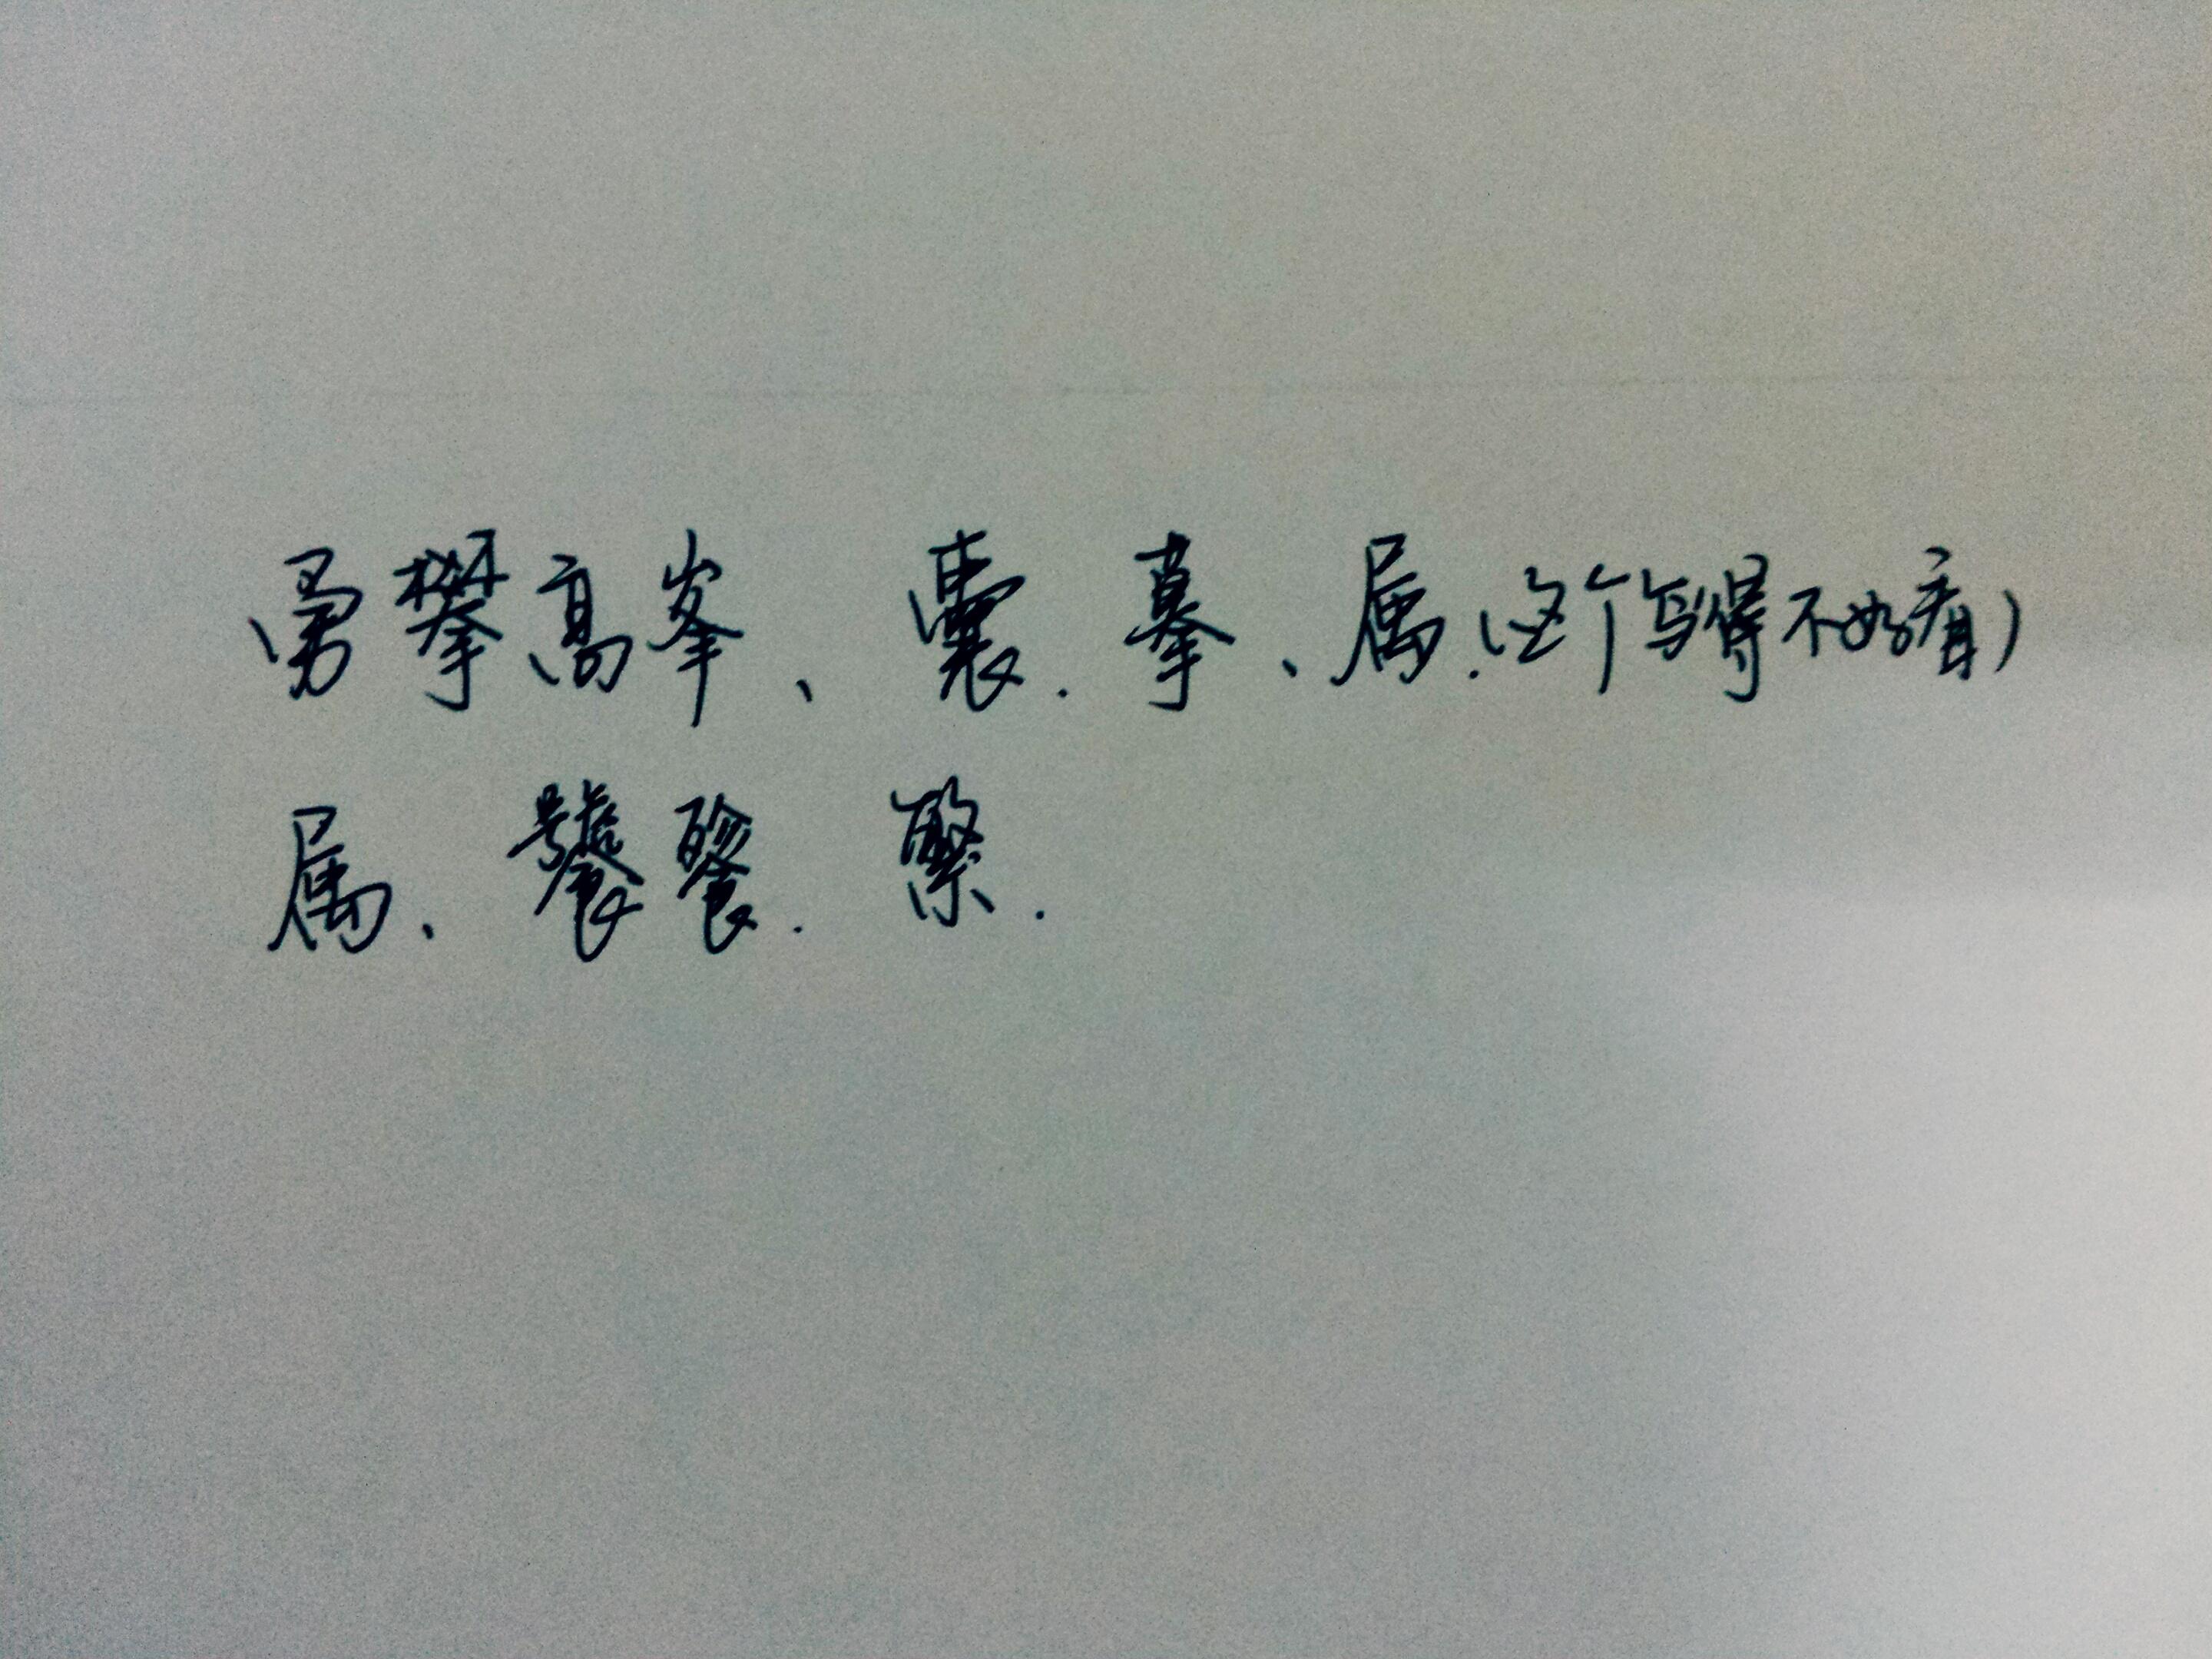 勇攀高峰、囊.摹、属.(这个写得不好看)
属、饕餮.繁.